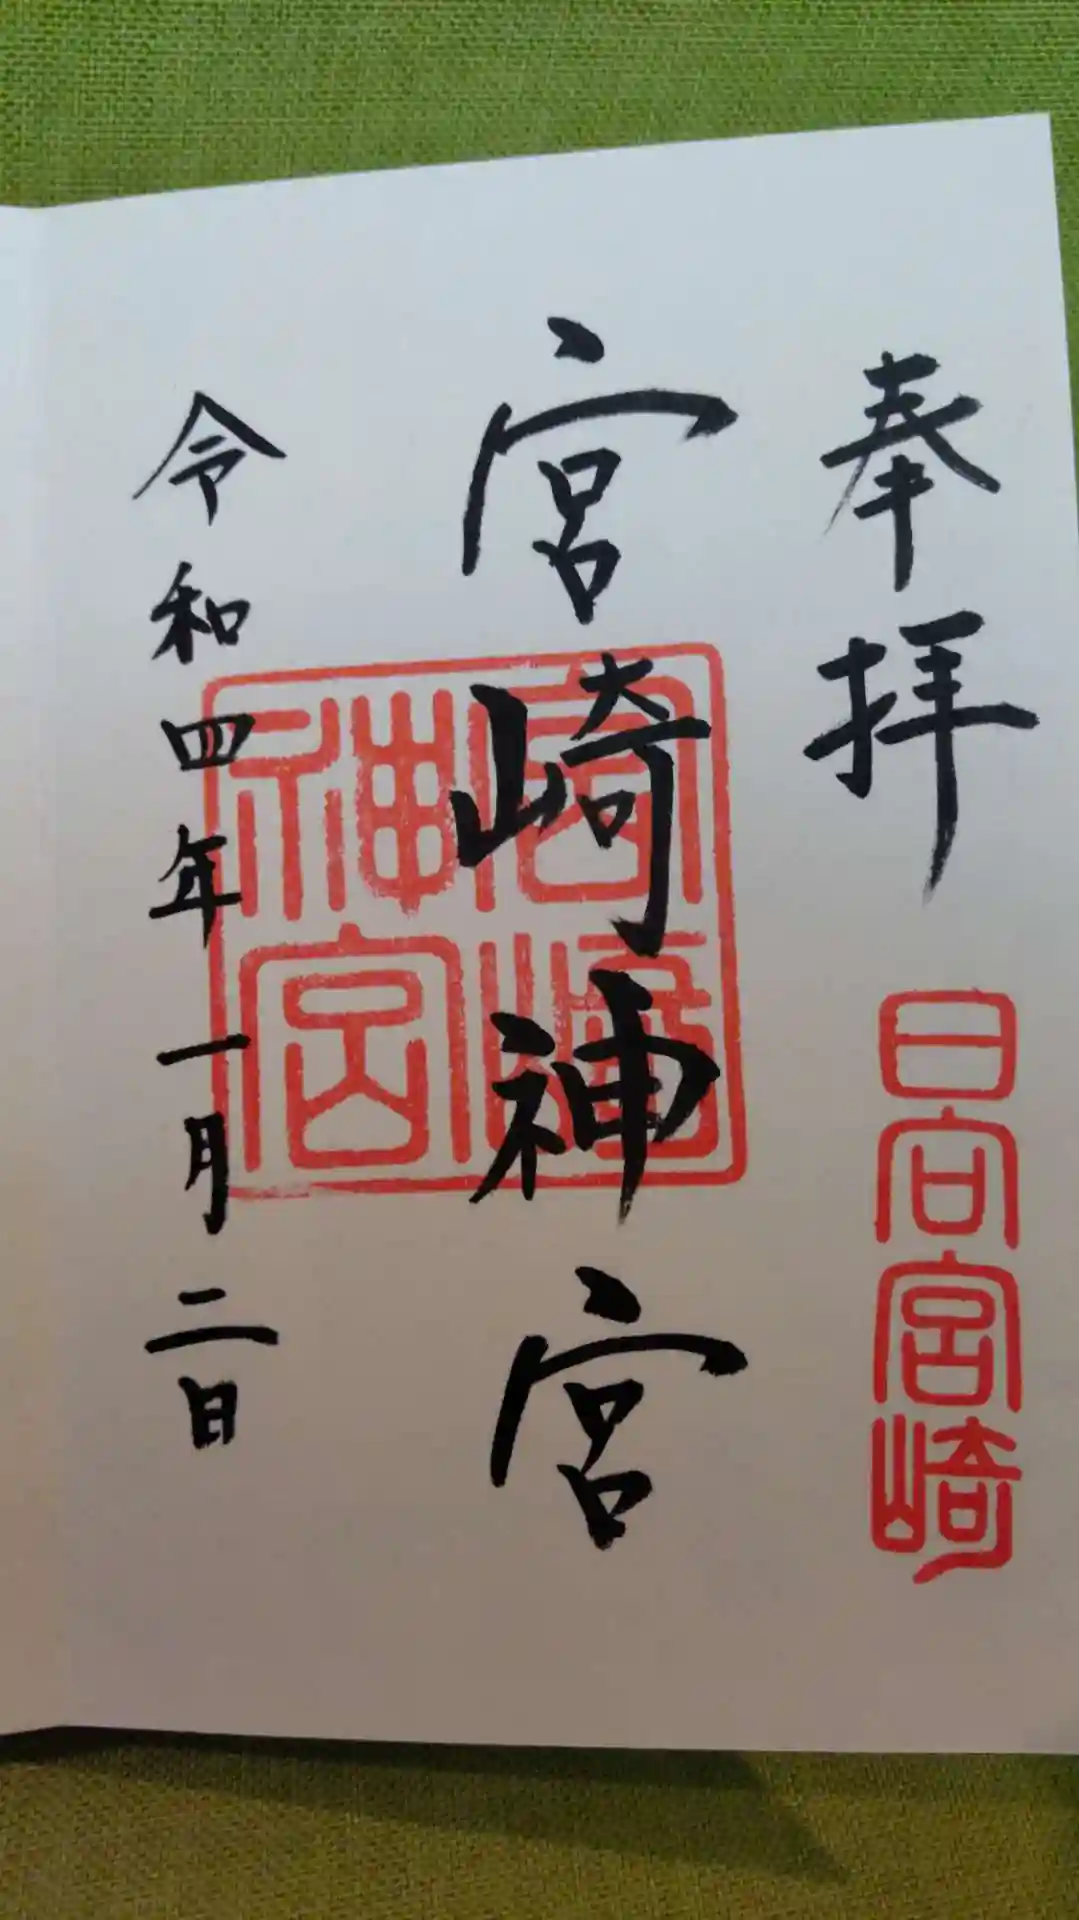 奉拝
日向宮崎
宮崎神宮
宮崎神宮
令和四年一月二日